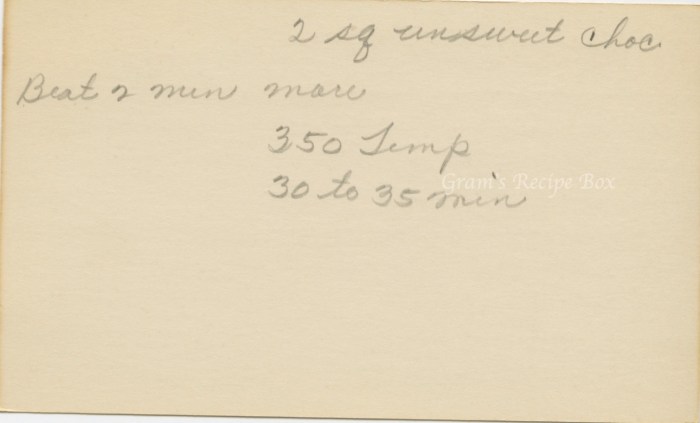 2 sq unsweet choc
Beat 2 min more
350 Temp
30 to 35 min
Gram's Recipe Box